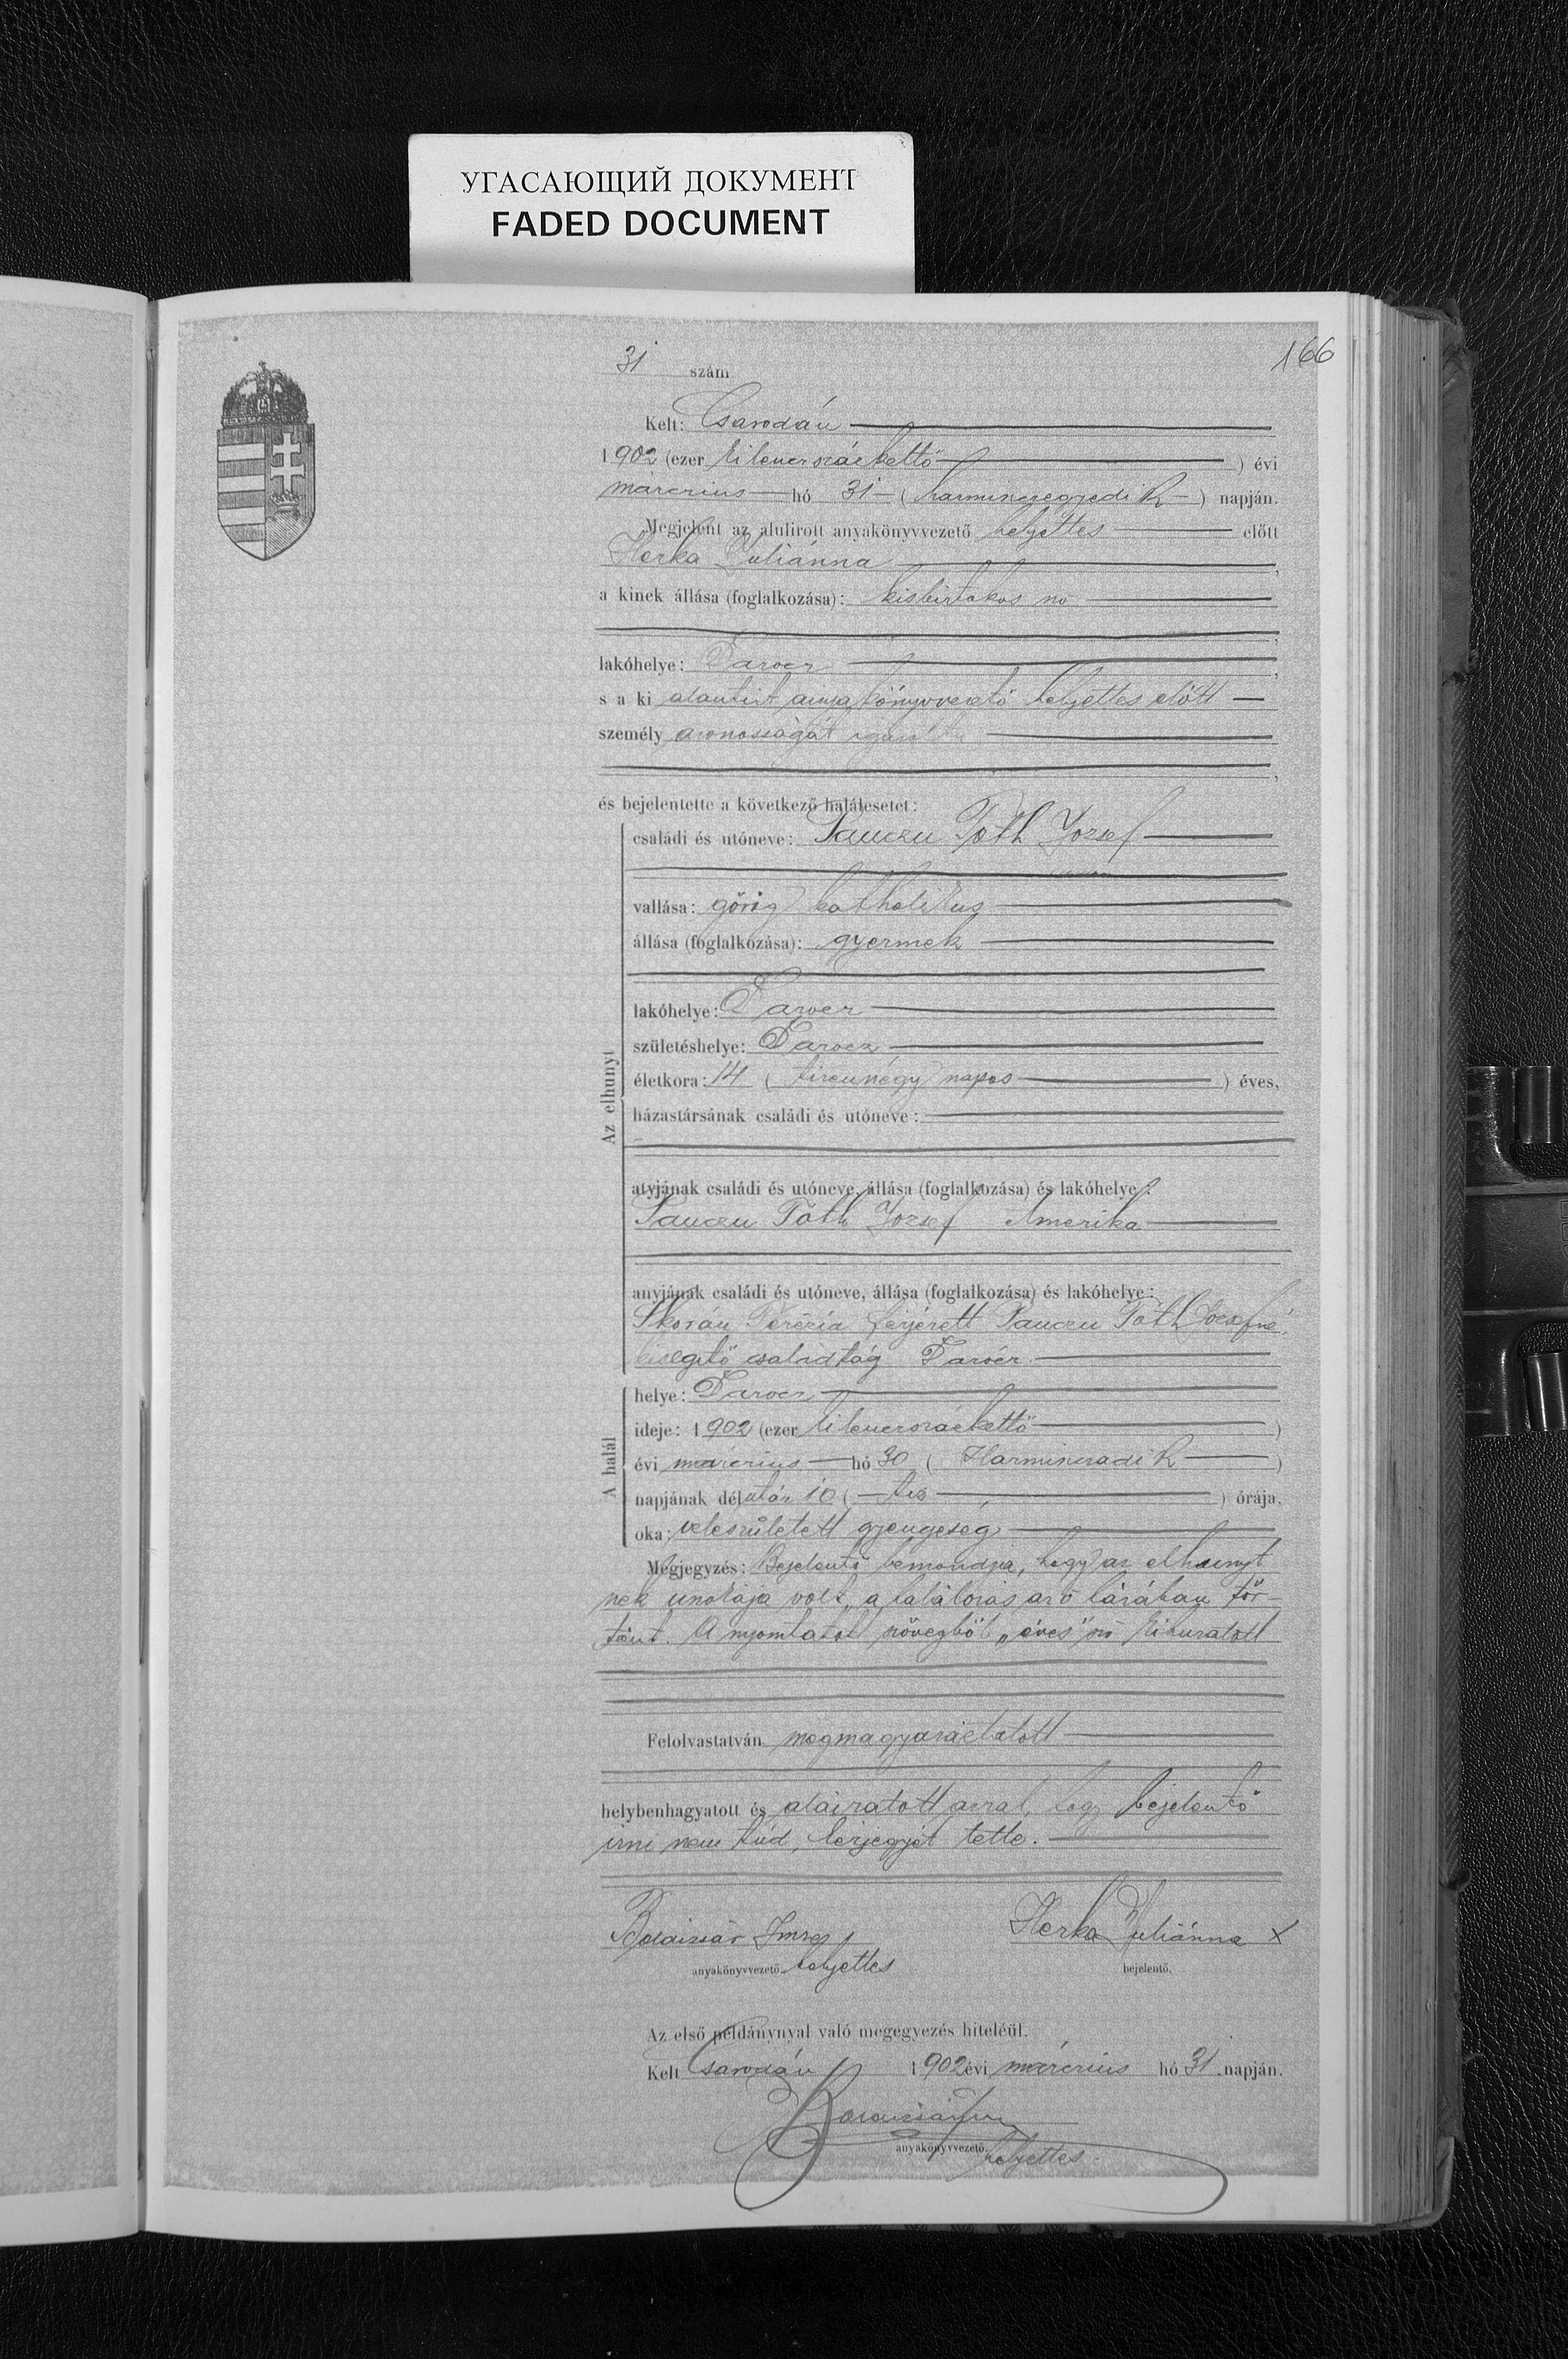 УГАСАЮЩИЙ ДОКУМЕНТ
FADED DOCUMENT
166
31 szám
Kelt: Csarodán
1902 (ezer kilenczszázkettő) évi
márczius hó 31 (harminczegyedik) napján.
Megjelent az alulirott anyakönyvvezető helyettes előtt
Herka Juliánna,
a kinek állása (foglalkozása): kisbirtokos nő
,
lakóhelye: Darócz,
s a ki alantirt anyakönyvvezető helyettes előtt
személy azonosságát igazolta
,
és bejelentette a következő halálesetet:
Az elhunyt
családi és utóneve: Pauczu Tóth József
vallása: görög katholikus
állása (foglalkozása): gyermek
lakóhelye: Darócz
születéshelye: Darócz
életkora: 14 (tizennégy napos) éves,
házastársának családi és utóneve:
atyjának családi és utóneve, állása (foglalkozása) és lakóhelye:
Pauczu Tóth József Amerika
anyjának családi és utóneve, állása (foglalkozása) és lakóhelye:
Skorán Terézia férjezett Pauczu Tóth Józsefné,
kisegitő családtag Darócz.
A halál
helye: Darócz
ideje: 1902 (ezer kilenczszázkettő)
évi márczius hó 30 (Harminczadik)
napjának délután 10 (tiz) órája.
oka: veleszületett gyengeség
Megjegyzés: Bejelentő bemondja, hogy az elhunyt
nek unokája volt, a halálozás az ő házában tör-
tént. A nyomtatott szövegből „éves" szó kihuzatott
Felolvastatván megmagyaráztatott
helybenhagyatott és aláiratott azzal, hogy bejelentő
irni nem tud, kézjegyét tette.
Imre Herka Juliánna X
anyakönyvvezető helyettes bejelentő.
Az első példánynyal való megegyezés hiteléül.
Kelt Csarodán 1902 évi márczius hó 31. napján.
anyakönyvvezető helyettes.